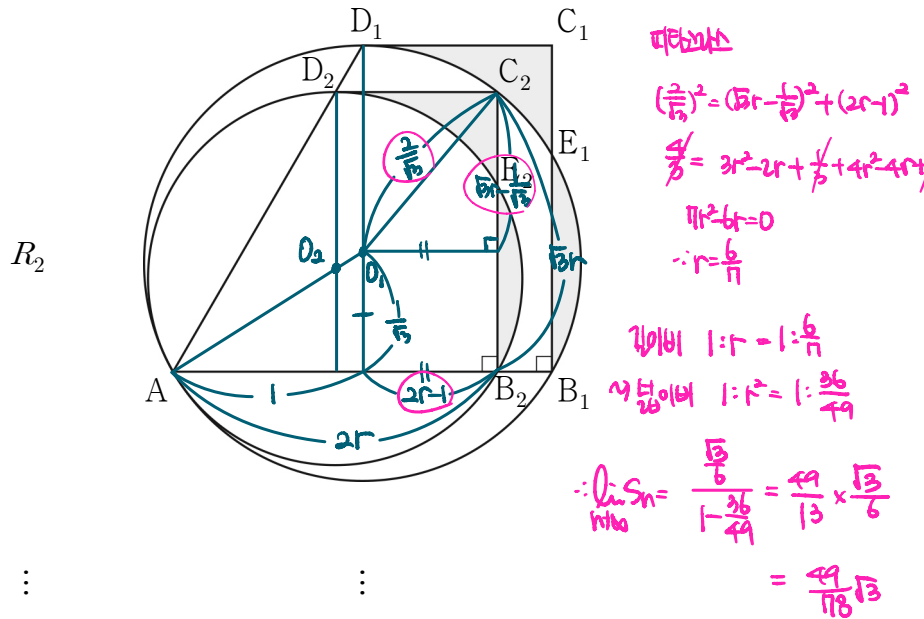 D₁
C₁
D₂
C₂
E₁
E₂
R₂
O₂
O₁
A
B₂
B₁
2/√3
√3r-1/√3
√3r
1/√3
1
2r-1
2r
⋮
⋮
피타고라스
(2/√3)² = (√3r-1/√3)² + (2r-1)²
4/3 = 3r²-2r+1/3+4r²-4r+1
7r²-6r=0
∴ r=6/7
길이비 1:r = 1:6/7
→ 넓이비 1:r² = 1:36/49
∴ lim n→∞ Sn = (√3/6)/(1-36/49) = 49/13 × √3/6
= 49/78 √3